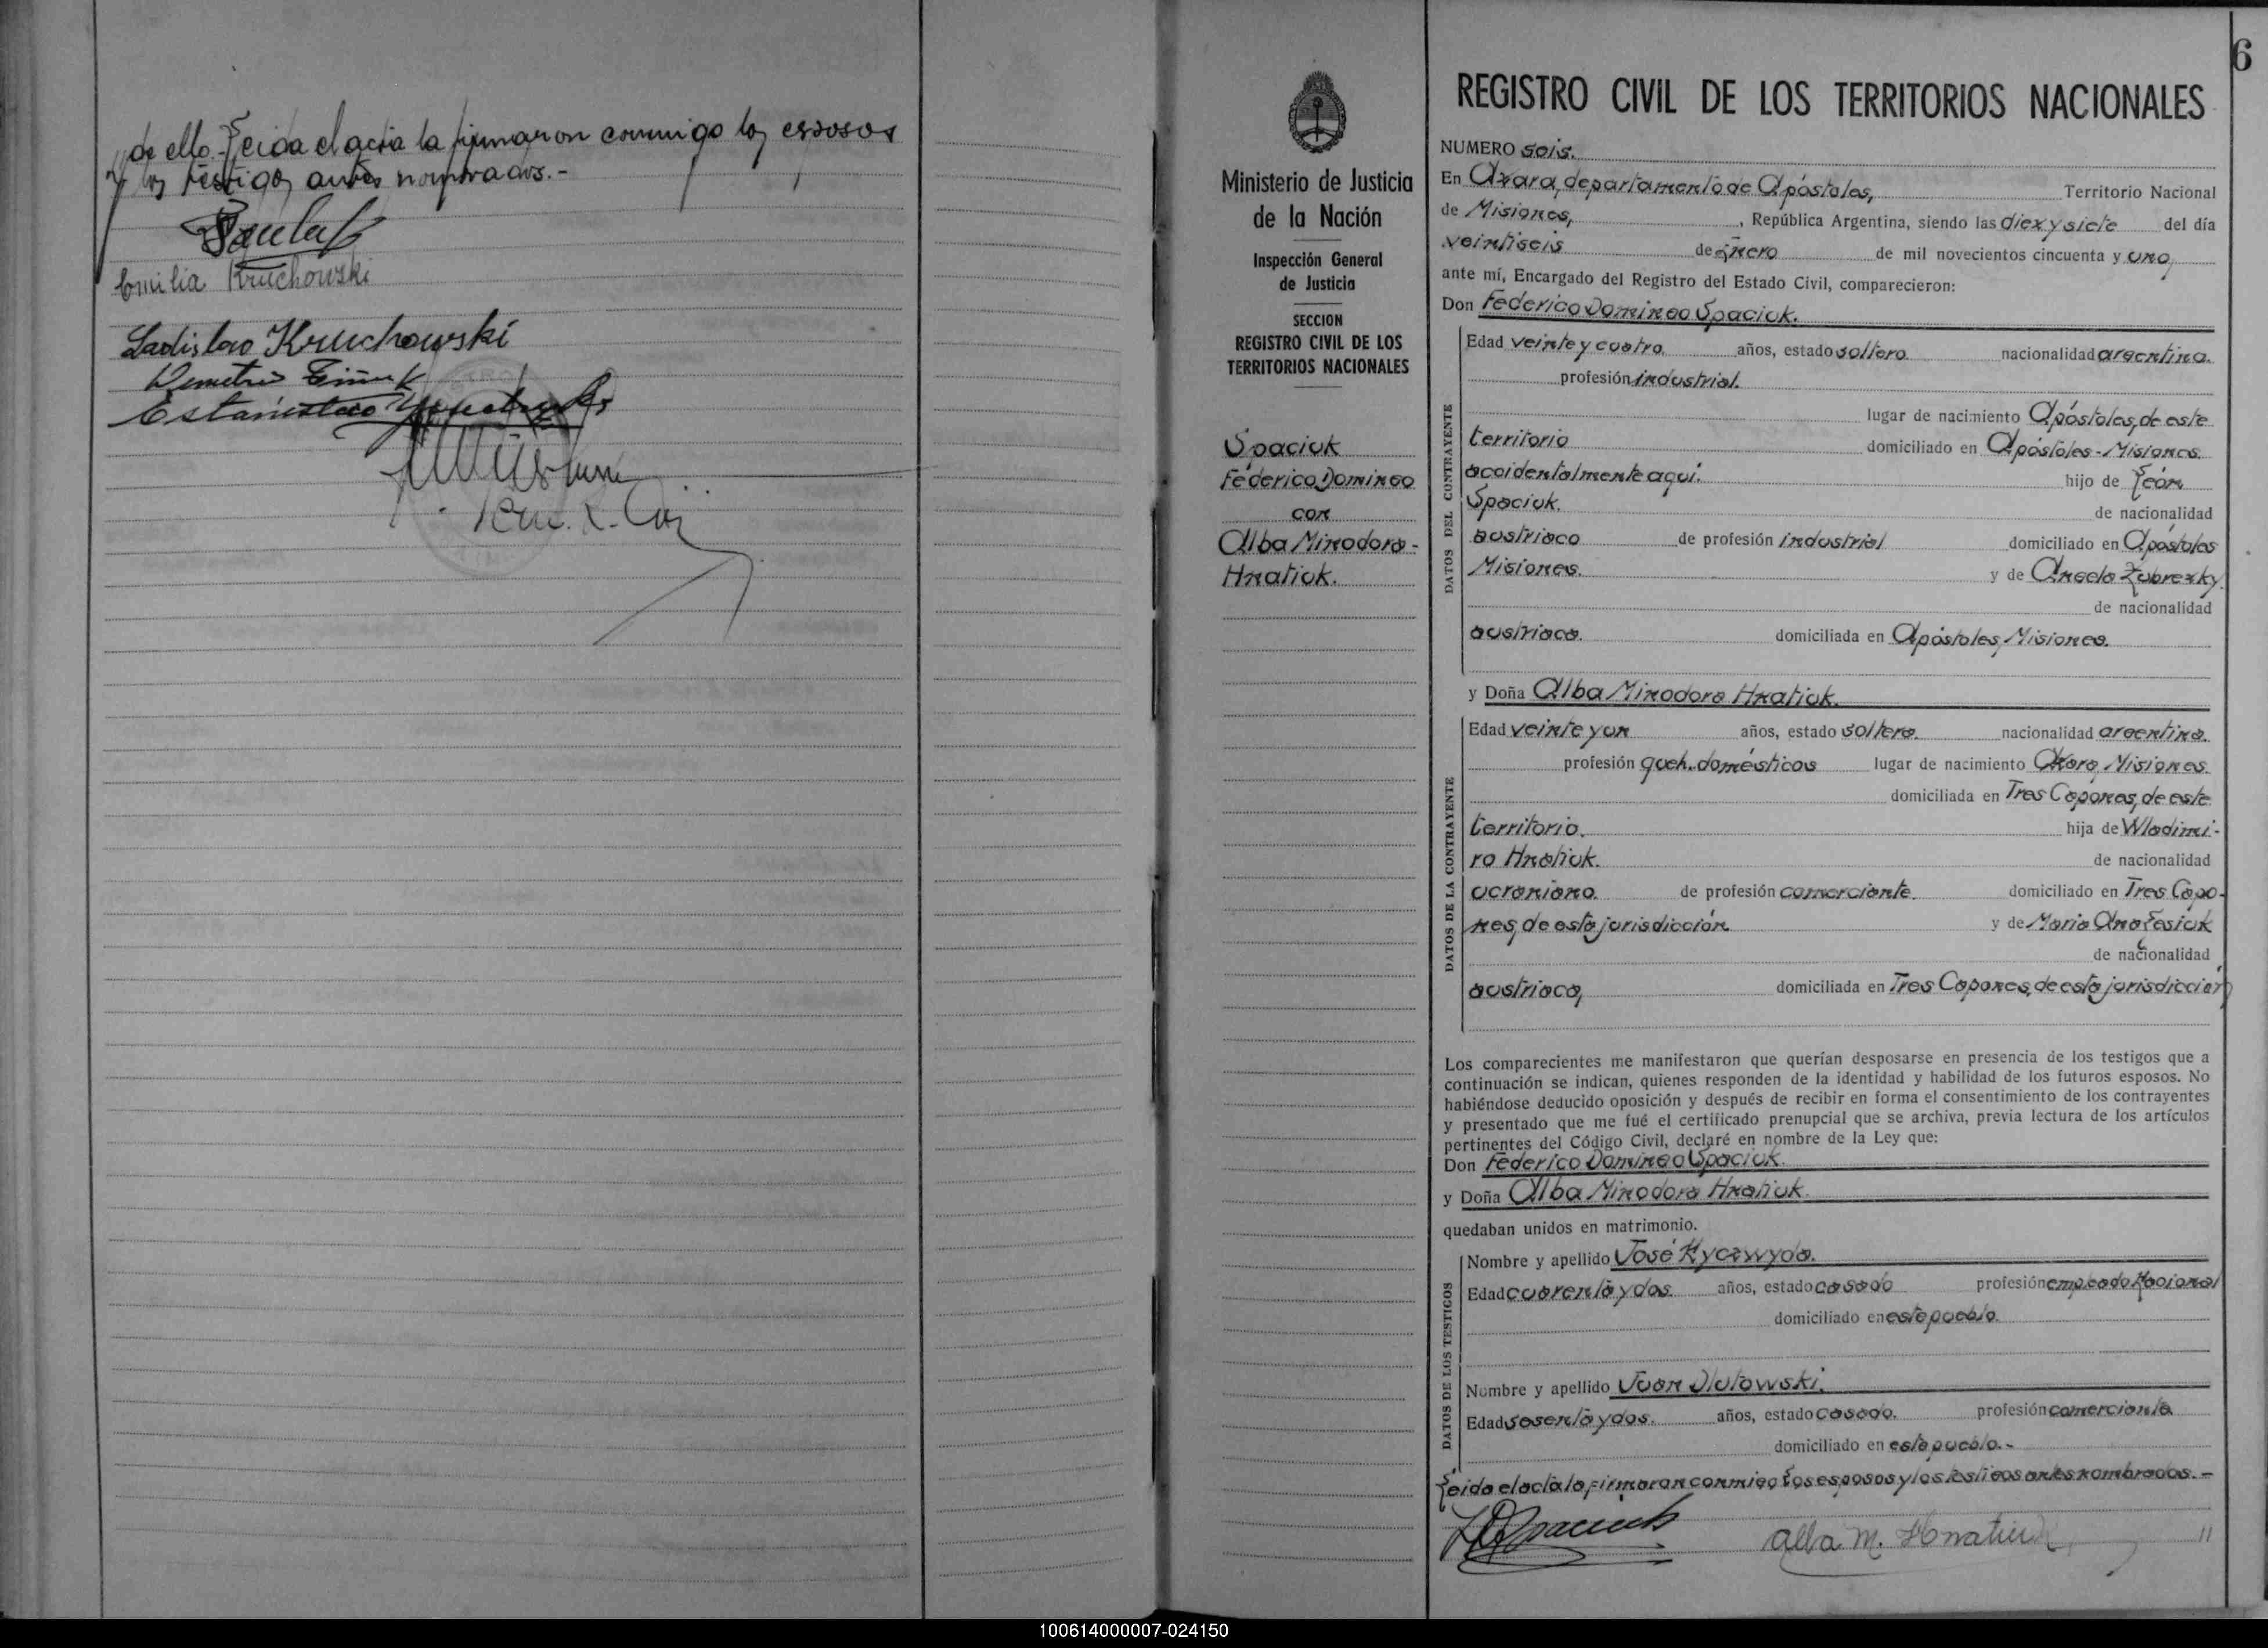 de ello. Leida el acta la firmaron conmigo los esposos
y los testigos antes nombrados.-
Emilia Kruchowski
Ladislao Kruchowski
Demetrio
Estanislao
6
Ministerio de Justicia
de la Nación
Inspección General
de Justicia
SECCION
REGISTRO CIVIL DE LOS
TERRITORIOS NACIONALES
Spaciuk
Federico Domingo
con
Alba Minodora-
Hnatiuk.
REGISTRO CIVIL DE LOS TERRITORIOS NACIONALES
NUMERO seis.
En Azara, departamento de Apóstoles, Territorio Nacional
de Misiones, , República Argentina, siendo las diez y siete del día
veintiseis de Enero de mil novecientos cincuenta y uno,
ante mí, Encargado del Registro del Estado Civil, comparecieron:
Don Federico Domingo Spaciuk.
DATOS DEL CONTRAYENTE
Edad veinte y cuatro años, estado soltero nacionalidad argentina.
profesión industrial.
lugar de nacimiento Apóstoles, de este
territorio domiciliado en Apóstoles - Misiones.
accidentalmente aquí. hijo de León
Spaciuk. de nacionalidad
austriaco de profesión industrial domiciliado en Apóstoles
Misiones. y de Angela Zubrezky.
de nacionalidad
austriaca. domiciliada en Apóstoles, Misiones.
y Doña Alba Minodora Hnatiuk.
DATOS DE LA CONTRAYENTE
Edad veinte y un años, estado soltera. nacionalidad argentina.
profesión queh. domésticos lugar de nacimiento Azara, Misiones.
domiciliada en Tres Capones, de este
territorio. hija de Wladimi-
ro Hnatiuk. de nacionalidad
ucraniano. de profesión comerciante. domiciliado en Tres Capo-
nes, de esta jurisdicción y de Maria Ana Lesiuk
de nacionalidad
austriaca, domiciliada en Tres Capones, de esta jurisdicción
Los comparecientes me manifestaron que querían desposarse en presencia de los testigos que a
continuación se indican, quienes responden de la identidad y habilidad de los futuros esposos. No
habiéndose deducido oposición y después de recibir en forma el consentimiento de los contrayentes
y presentado que me fué el certificado prenupcial que se archiva, previa lectura de los artículos
pertinentes del Código Civil, declaré en nombre de la Ley que:
Don Federico Domingo Spaciuk.
y Doña Alba Minodora Hnatiuk.
quedaban unidos en matrimonio.
DATOS DE LOS TESTIGOS
Nombre y apellido José Hyczwyda.
Edad cuarenta y dos. años, estado casado profesión empleado Nacional
domiciliado en este pueblo.
Nombre y apellido Juan Dlutowski.
Edad sesenta y dos. años, estado casado. profesión comerciante.
domiciliado en este pueblo.-
Leida el acta la firmaron conmigo los esposos y los testigos antes nombrados.-
Alba M. Hnatiuk
100614000007-024150